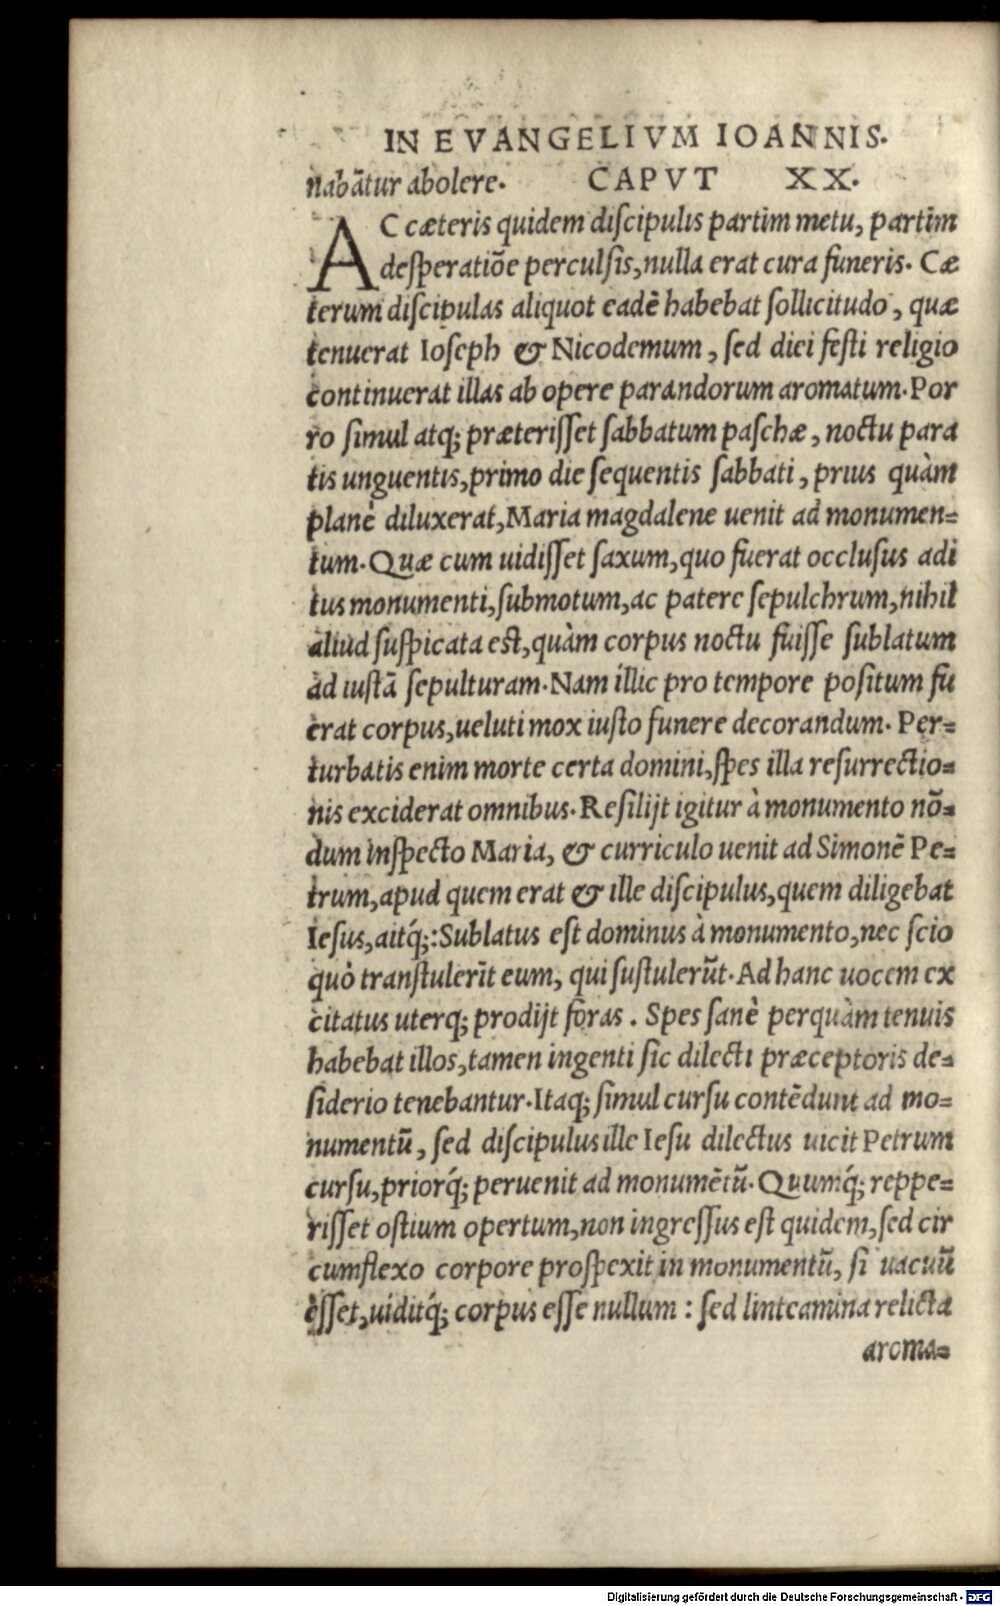 IN EVANGELIVM IOANNIS.
nabãtur abolere. CAPVT XX.
AC cæteris quidem diſcipulis partim metu, partim
deſperatiõe perculſis, nulla erat cura funeris. Cæ
terum diſcipulas aliquot eadẽ habebat ſollicitudo, quæ
tenuerat Ioſeph & Nicodemum, ſed diei feſti religio
continuerat illas ab opere parandorum aromatum. Por
ro ſimul atq; præteriſſet ſabbatum paſchæ, noctu para
tis unguentis, primo die ſequentis ſabbati, prius quàm
planè diluxerat, Maria magdalene uenit ad monumen=
tum. Quæ cum uidiſſet ſaxum, quo fuerat occluſus adi
tus monumenti, ſubmotum, ac patere ſepulchrum, nihil
aliud ſuſpicata eſt, quàm corpus noctu fuiſſe ſublatum
ad iuſtã ſepulturam. Nam illic pro tempore poſitum fu
erat corpus, ueluti mox iuſto funere decorandum. Per=
turbatis enim morte certa domini, ſpes illa reſurrectio=
nis exciderat omnibus. Reſilijt igitur à monumento nõ=
dum inſpecto Maria, & curriculo uenit ad Simonẽ Pe=
trum, apud quem erat & ille diſcipulus, quem diligebat
Ieſus, aitq́;: Sublatus eſt dominus à monumento, nec ſcio
quò tranſtulerĩt eum, qui ſuſtulerũt. Ad hanc uocem ex
citatus uterq; prodijt foras. Spes ſanè perquàm tenuis
habebat illos, tamen ingenti ſic dilecti præceptoris de=
ſiderio tenebantur. Itaq; ſimul curſu contẽdunt ad mo=
numentũ, ſed diſcipulus ille Ieſu dilectus uicit Petrum
curſu, priorq́; peruenit ad monumẽtũ. Quumq́; reppe=
riſſet oſtium opertum, non ingreſſus eſt quidem, ſed cir
cumflexo corpore proſpexit in monumentũ, ſi uacuũ
eſſet, uiditq́; corpus eſſe nullum: ſed linteamina relicta
aroma=
Digitalisierung gefördert durch die Deutsche Forschungsgemeinschaft - DFG